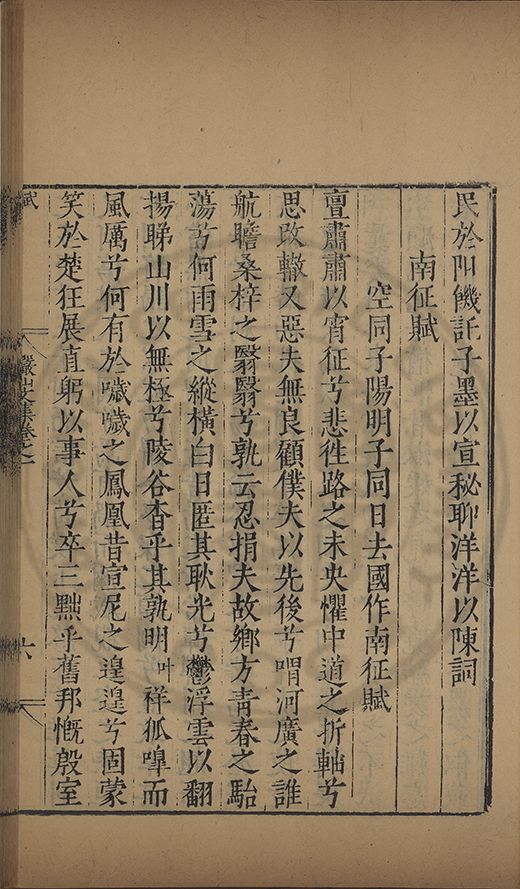 民於阻饑託子墨以宣秘聊洋洋以陳詞
南征賦
空同子陽明子同日去國作南征賦
亶肅肅以宵征兮悲徃路之未央懼中道之折軸兮
思攺轍又惡夫無良顧僕夫以先後兮喟河廣之誰
航瞻桑梓之翳翳兮孰云忍捐夫故鄉方青春之駘
蕩兮何雨雪之縱橫白日匿其耿光兮鬱浮雲以翻
揚睇山川以無極兮陵谷杳乎其孰明叶祥狐嘷而
風厲兮何有於噦噦之鳳凰昔宣尼之遑遑兮固蒙
笑於楚狂展直躬以事人兮卒三黜乎舊邦慨殷室
賦
卷之一
六